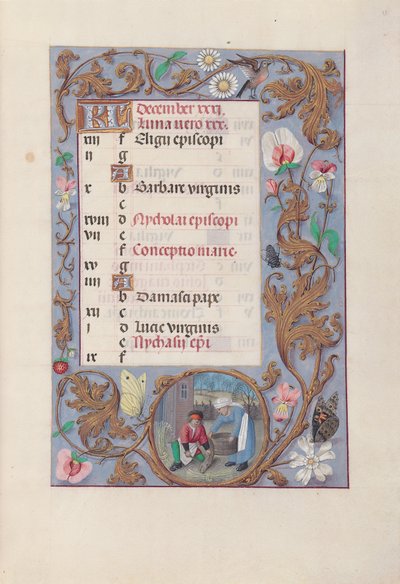 KL December xxxi
Luna vero xxx.
xiii f Eligii episcopi
ii g
A
x b Barbare virginis
c
xviii d Nycholai episcopi
vii e
f Conceptio marie
xv g
iiii A
b Damasci pape
xii c
i d Lucie virginis
e Nychasii epi
ix f